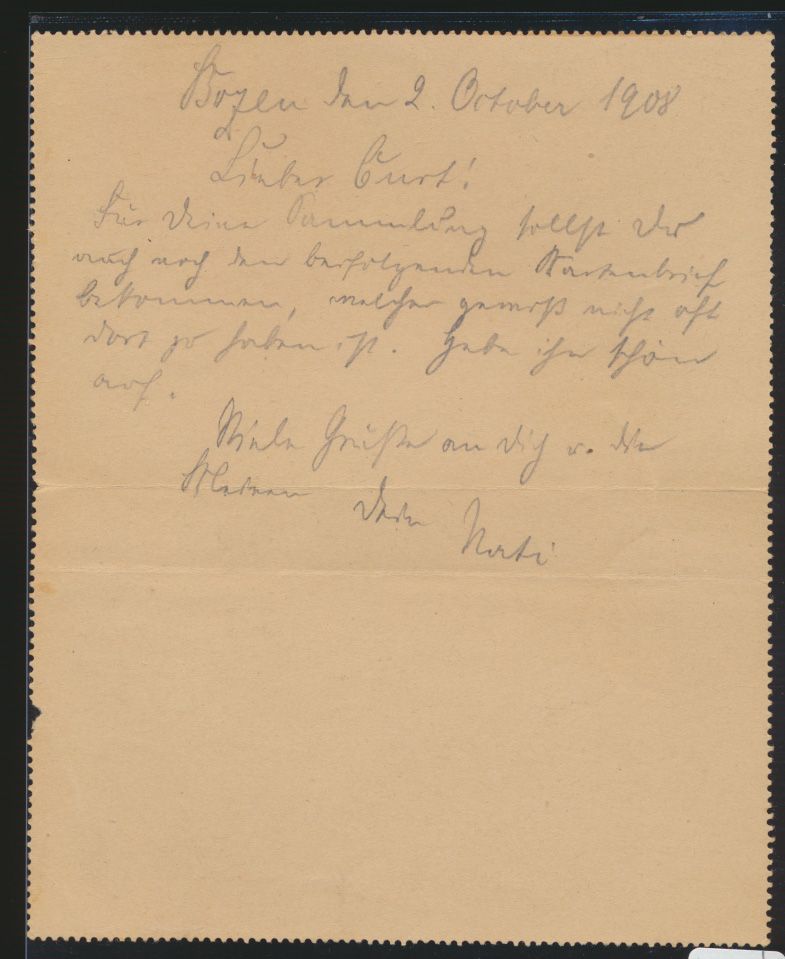 Bozen den 2. October 1908
Lieber Curt!
Für Deine Sammlung sollst Du
auch noch den beifolgenden Kartenbrief
bekommen, welcher gewiß nicht oft
dort zu haben ist. Hebe ihn schön
auf.
Viele Grüße an Dich u. die
Kleinen Dein